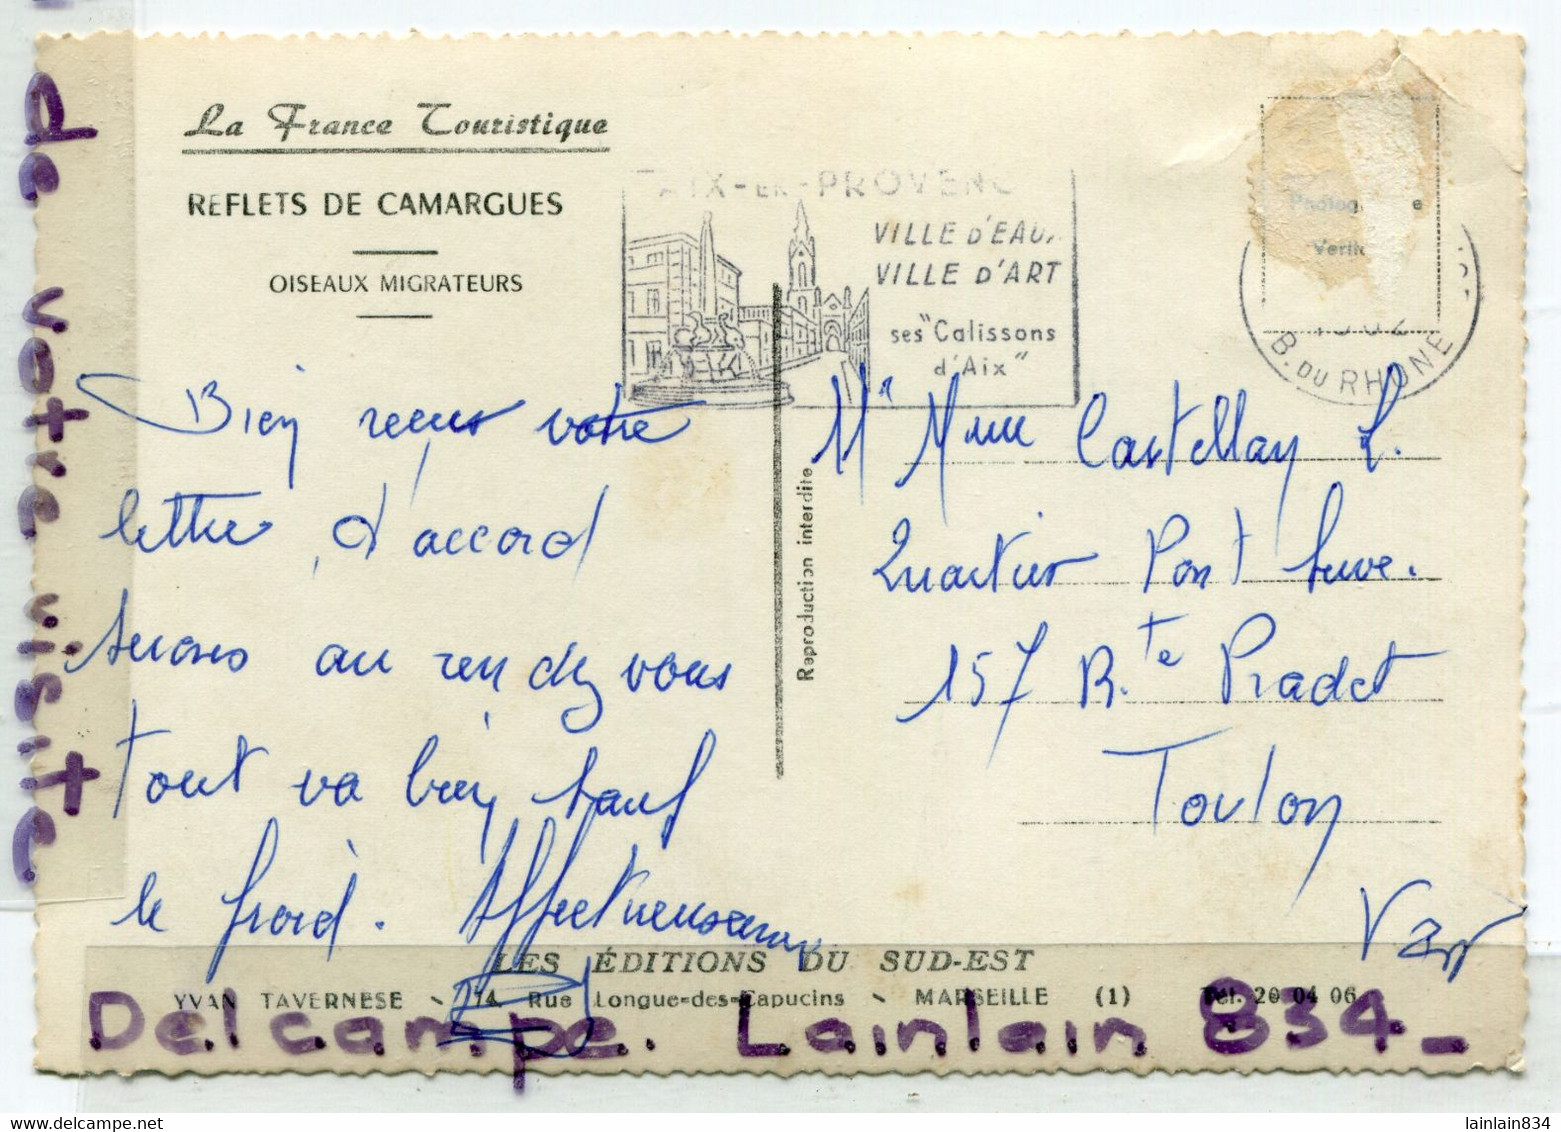 La France Touristique
REFLETS DE CAMARGUES
OISEAUX MIGRATEURS
AIX-EN-PROVENC
VILLE D'EAUX
VILLE D'ART
ses "Calissons
d'Aix"
B. DU RHONE
Bien reçus votre
lettre, d'accord
serons au rendez vous
tout va bien sauf
le froid. Affectueusement
Mr Mme Castellan L.
Quartier Pont Suve.
157 Rte Pradet
Toulon
Var
Reproduction interdite
LES ÉDITIONS DU SUD-EST
YVAN TAVERNESE - 14, Rue Longue-des-Capucins - MARSEILLE (1) Tél. 20 04 06
de votre visite
Delcampe. Lainlain 834_
delcampe.net
lainlain834